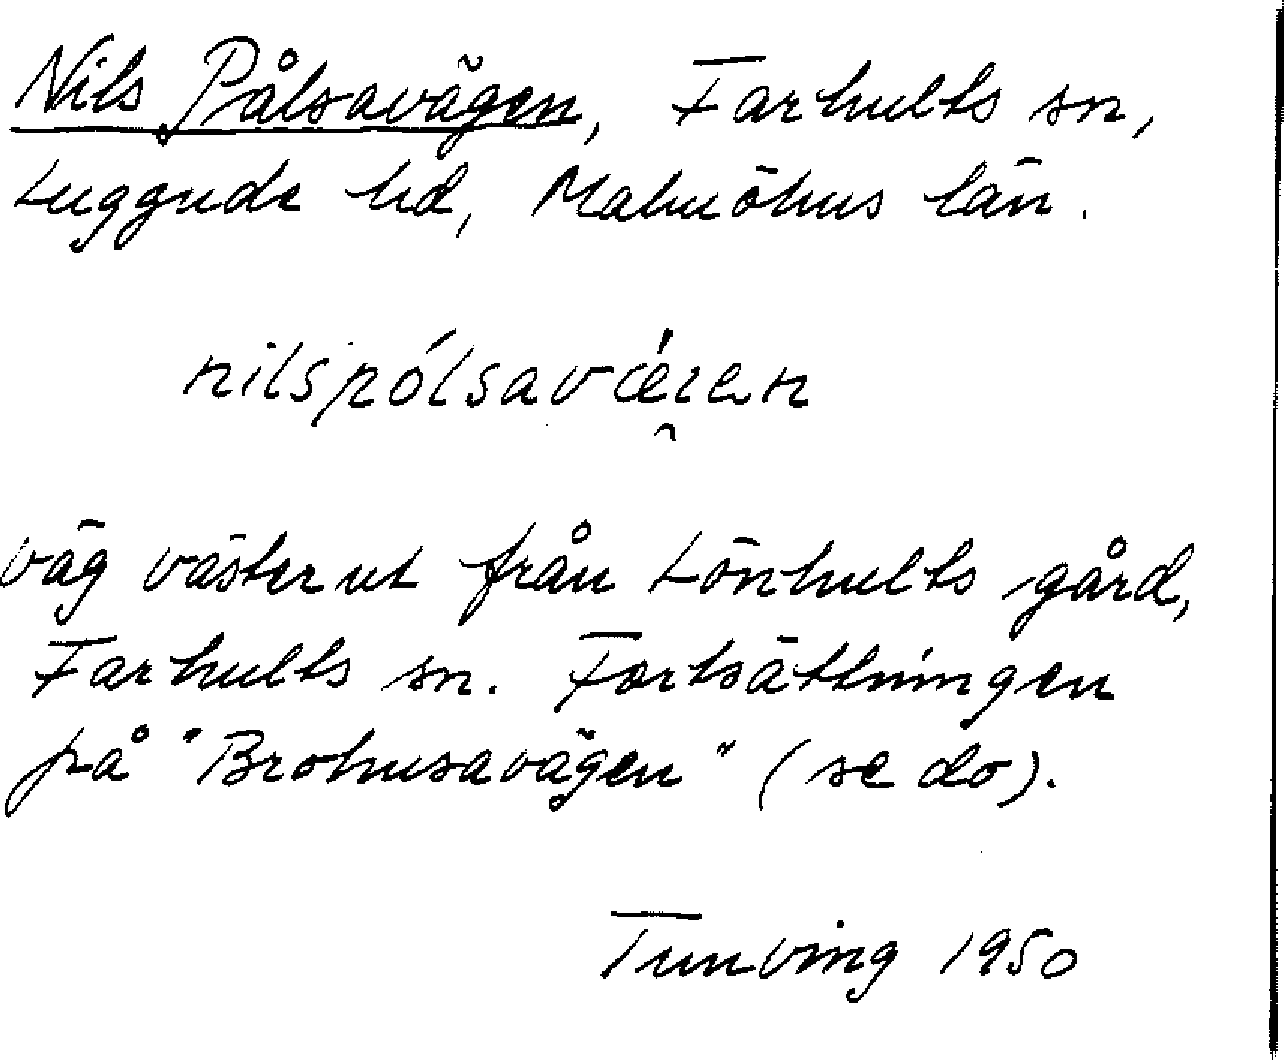 Nils Pålsavägen, Farhults sn,
Luggude hd, Malmöhus län.
nilspólsavǽi̯en
väg västerut från Lönhults gård,
Farhults sn. Fortsättningen
på "Brohusavägen" (se do).
Tunving 1950